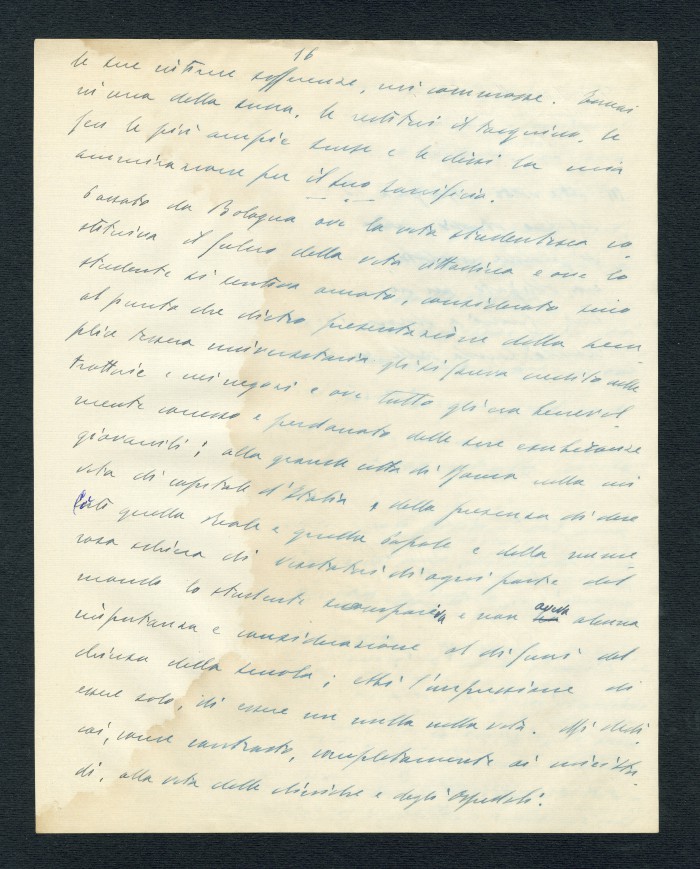 16
le sue intime sofferenze, mi commosse. Tornai
in una della suora, le restituii il taccuino, le
feci le più ampie scuse e le dissi la mia
ammirazione per il suo sacrificio.
Passato da Bologna ove la vita studentesca co
stituiva il fulcro della vita cittadina e ove lo
studente si sentiva amato, considerato sino
al punto che dietro presentazione della sem
plice tessera universitaria gli si faceva credito nelle
trattorie e nei negozi e ove tutto gli era benevol
mente concesso e perdonato delle sue esuberanze
giovanili; alla grande città di Roma nella mi
vita di capitale d'Italia e della presenza di due
Corti quella Reale e quella Papale e della nume
rosa schiera di visitatori di ogni parte del
mondo lo studente scompariva e non aveva alcuna
importanza e considerazione al di fuori del
chiuso della scuola; ebbi l'impressione di
essere solo, di essere un nulla nella vita. Mi dedi
cai, come contrasto, completamente ai miei stu
di, alla vita delle cliniche e degli ospedali.